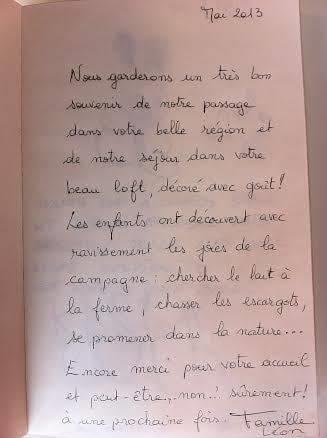 Mai 2013
Nous garderons un très bon
souvenir de notre passage
dans votre belle région et
de notre séjour dans votre
beau loft, décoré avec goût !
Les enfants ont découvert avec
ravissement les joies de la
campagne : chercher le lait à
la ferme, chasser les escargots,
se promener dans la nature...
Encore merci pour votre accueil
et peut-être, non ! sûrement !
à une prochaine fois. Famille
Léon